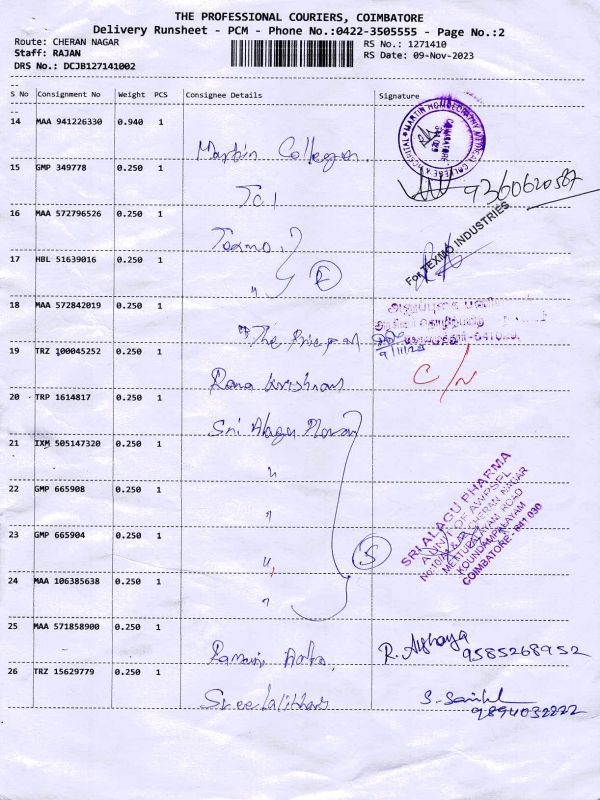 THE PROFESSIONAL COURIERS, COIMBATORE
Delivery Runsheet - PCM - Phone No.:0422-3505555 - Page No.:2
Route: CHERAN NAGAR
RS No.: 1271410
Staff: RAJAN
RS Date: 09-Nov-2023
DRS No.: DCJB127141002
S No Consignment No Weight PCS Consignee Details Signature
14 MAA 941226330 0.940 1
Martin College
9360620587
15 GMP 349778 0.250 1
16 MAA 572796526 0.250 1
Texmo
For TEXMO INDUSTRIES
17 HBL 51639016 0.250 1
"
18 MAA 572842019 0.250 1
The
9/11/23
19 TRZ 100045252 0.250 1
Rama Krishnan
C/N
20 TRP 1614817 0.250 1
Sri Alagu
21 IXM 505147320 0.250 1
"
22 GMP 665908 0.250 1
"
23 GMP 665904 0.250 1
"
5
SRI ALAGU PHARMA
A UNIT OF AWPSFL
CHERAN NAGAR
METTUPALAYAM ROAD
KOUNDAMPALAYAM
COIMBATORE - 641 030
24 MAA 106385638 0.250 1
"
25 MAA 571858900 0.250 1
R. Aishaya
9585268952
26 TRZ 15629779 0.250 1
Sree Lalithas
9894032222